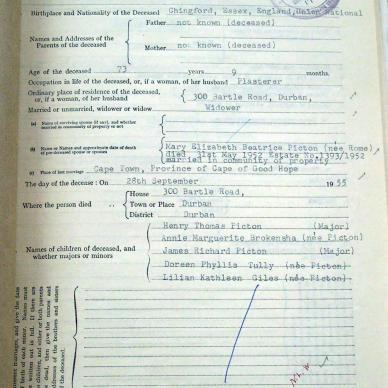 Birthplace and Nationality of the Deceased Chingford, Essex, England, Union National
Father not known (deceased)
Names and Addresses of the Parents of the deceased
Mother not known (deceased)
Age of the deceased 73 years 9 months.
Occupation in life of the deceased, or, if a woman, of her husband Plasterer
Ordinary place of residence of the deceased, or, if a woman, of her husband 300 Bartle Road, Durban,
Married or unmarried, widower or widow Widower
(a) Name of surviving spouse (if any), and whether married in community of property or not
(b) Name or Names and approximate date of death of pre-deceased spouse or spouses
Mary Elizabeth Beatrice Picton (née Rome)
died 31st May 1952 Estate No.1393/1952
married in community of property
(c) Place of last marriage Cape Town, Province of Cape of Good Hope
The day of the decease: On 28th September 1955
House 300 Bartle Road,
Where the person died .. Town or Place Durban
District Durban
Henry Thomas Picton (Major)
Annie Marguerite Brokensha (née Picton)
Names of children of deceased, and whether majors or minors
James Richard Picton (Major)
Doreen Phyllis Tully (née Picton)
Lilian Kathleen Giles (née Picton)